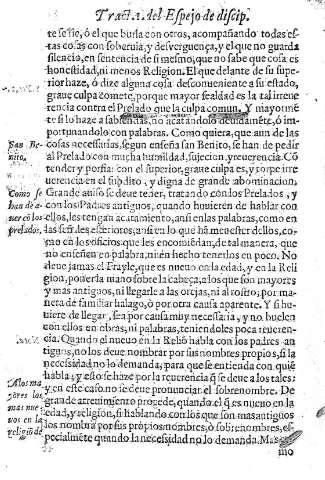 Tract. 2. del Espejo de discip.
te se rie, ò el que burla con otros, acompañando todas es-
tas cosas con soberuia, y desverguença, y el que no guarda
silencio, en sentencia de si mesmo, que no sabe que cosa es
honestidad, ni menos Religion. El que delante de su supe-
rior haze, ò dize alguna cosa desconueniente à su estado,
graue culpa comete, porque mayor fealdad es la tal irreue
rencia contra el Prelado que la culpa comun. Y mayormẽ
te si lo haze a sabiendas, no acatandolo deuidamẽte, ò im-
portunandolo con palabras. Como quiera, que aun de las
cosas necessarias, segun enseña san Benito, se han de pedir
al Prelado con mucha humildad, sujecion, y reuerencia. Cõ
tender y porfiar con el superior, graue culpa es, y torpe irre
uerencia en el subdito, y digna de grande abominacion.
Grande auiso se deue tener, tratando con los Prelados, y
con los Padres antiguos, quando huuieren de hablar con
ellos, les tengan acatamiento, assi en las palabras, como en
las señales exteriores, assi en lo que hã menester dellos, co-
mo en los oficios que les encomiẽdan, de tal manera, que
no enseñen en palabra, ni en hecho tenerlos en poco. No
deue jamas el Frayle, que es nueuo en la edad, y en la Reli
gion, poner la mano sobre la cabeça, a los que son mayores
y mas antiguos, ni llegarle a las orejas, ni al rostro, por ma-
nera de familiar halago, ò por otra causa aparente. Y si hu-
uiere de llegar, sea por causa muy necessaria, y no burlen
con ellos en obras, ni palabras, teniendoles poca reueren-
cia. Quando el nueuo en la Religiõ habla con los padres an
tiguos, no los deue nombrar por sus nombres propios, si la
necessidad no lo demanda, para que se entienda con quiẽ
habla, y esto se haze por la reuerencia q̃ se deue a los tales:
y en este caso no se deue pronunciar el sobrenombre. De
grande atreuimiento procede, quando el q̃ es nueuo en la
edad, y religion, si hablando con los que son mas antiguos
los nombra por sus propios nombres, ò sobrenombres, es-
pecialmẽte quando la necessidad no lo demanda. Mas
mo
San Be-
nito.
Como se
han de a-
uer cõ los
prelados.
A los ma
yores los
mas nue-
uos en la
religiõ de